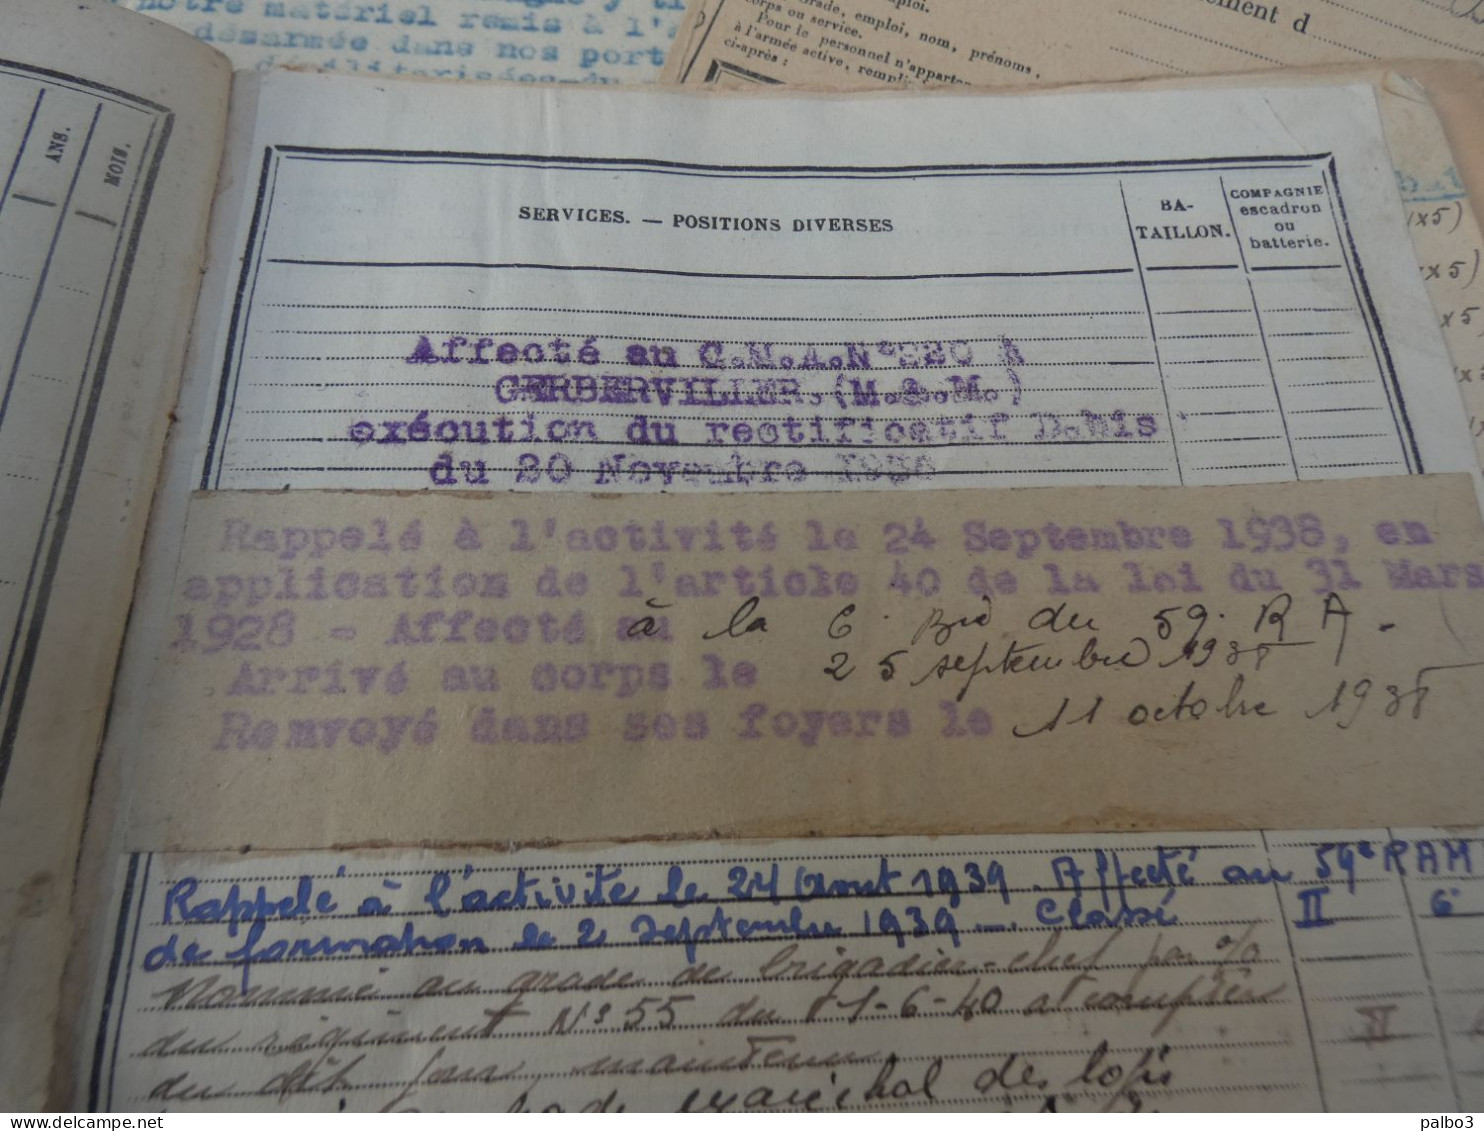 notre matériel remis à l'
désarmée dans nos port
grade, emploi, nom, prénoms,
corps ou service.
Pour le personnel n'apparten
à l'armée active, rempli
ci-après :
ement d
ANS.
MOIS.
SERVICES. — POSITIONS DIVERSES
BA-
TAILLON.
COMPAGNIE
escadron
ou
batterie.
x 5)
x 5)
x 5
Affecté au C.M.A.N° 220 A
GERBERVILLER.(M.&.M.)
exécution du rectificatif D.Bis
du 20 Novembre 1936
Rappelé à l'activité le 24 Septembre 1938, en
application de l'article 40 de la loi du 31 Mars
1928 - Affecté au à la 6. Bie du 59. R A -
Arrivé au corps le 25 septembre 1938
Renvoyé dans ses foyers le 11 octobre 1938
Rappelé à l'activité le 24 Aout 1939. Affecté au 59e RAM
de formation le 2 septembre 1939 - Classé II 6
Nommé au grade de brigadier-chef par
du régiment N° 55 du 1-6-40 à compter
du dit jour maintenu
maréchal des logis
palbo3